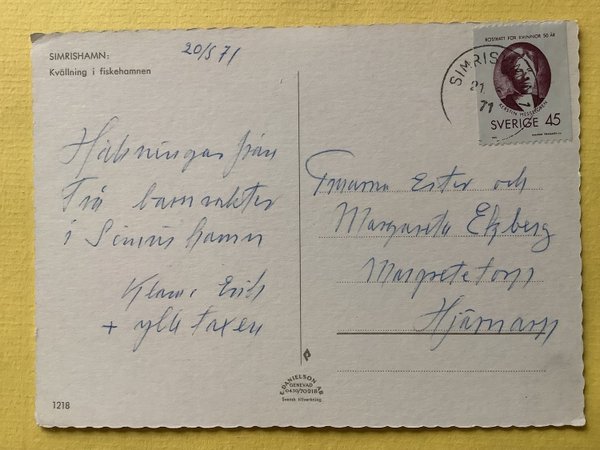 SIMRISHAMN:
Kvällning i fiskehamnen
20/5 71
Hälsningar från
Två barnvakter
i Simrishamn
Klara, Erik
+ ylle taxen
1218
E. DANIELSON AB
GENEVAD
0430/70218
Svensk tillverkning
SIMRIS
21
71
RÖSTRÄTT FÖR KVINNOR 50 ÅR
KERSTIN HESSELGREN
SVERIGE 45
Ester och
Margareta Ekberg
Margretetorp
Hjärnarp